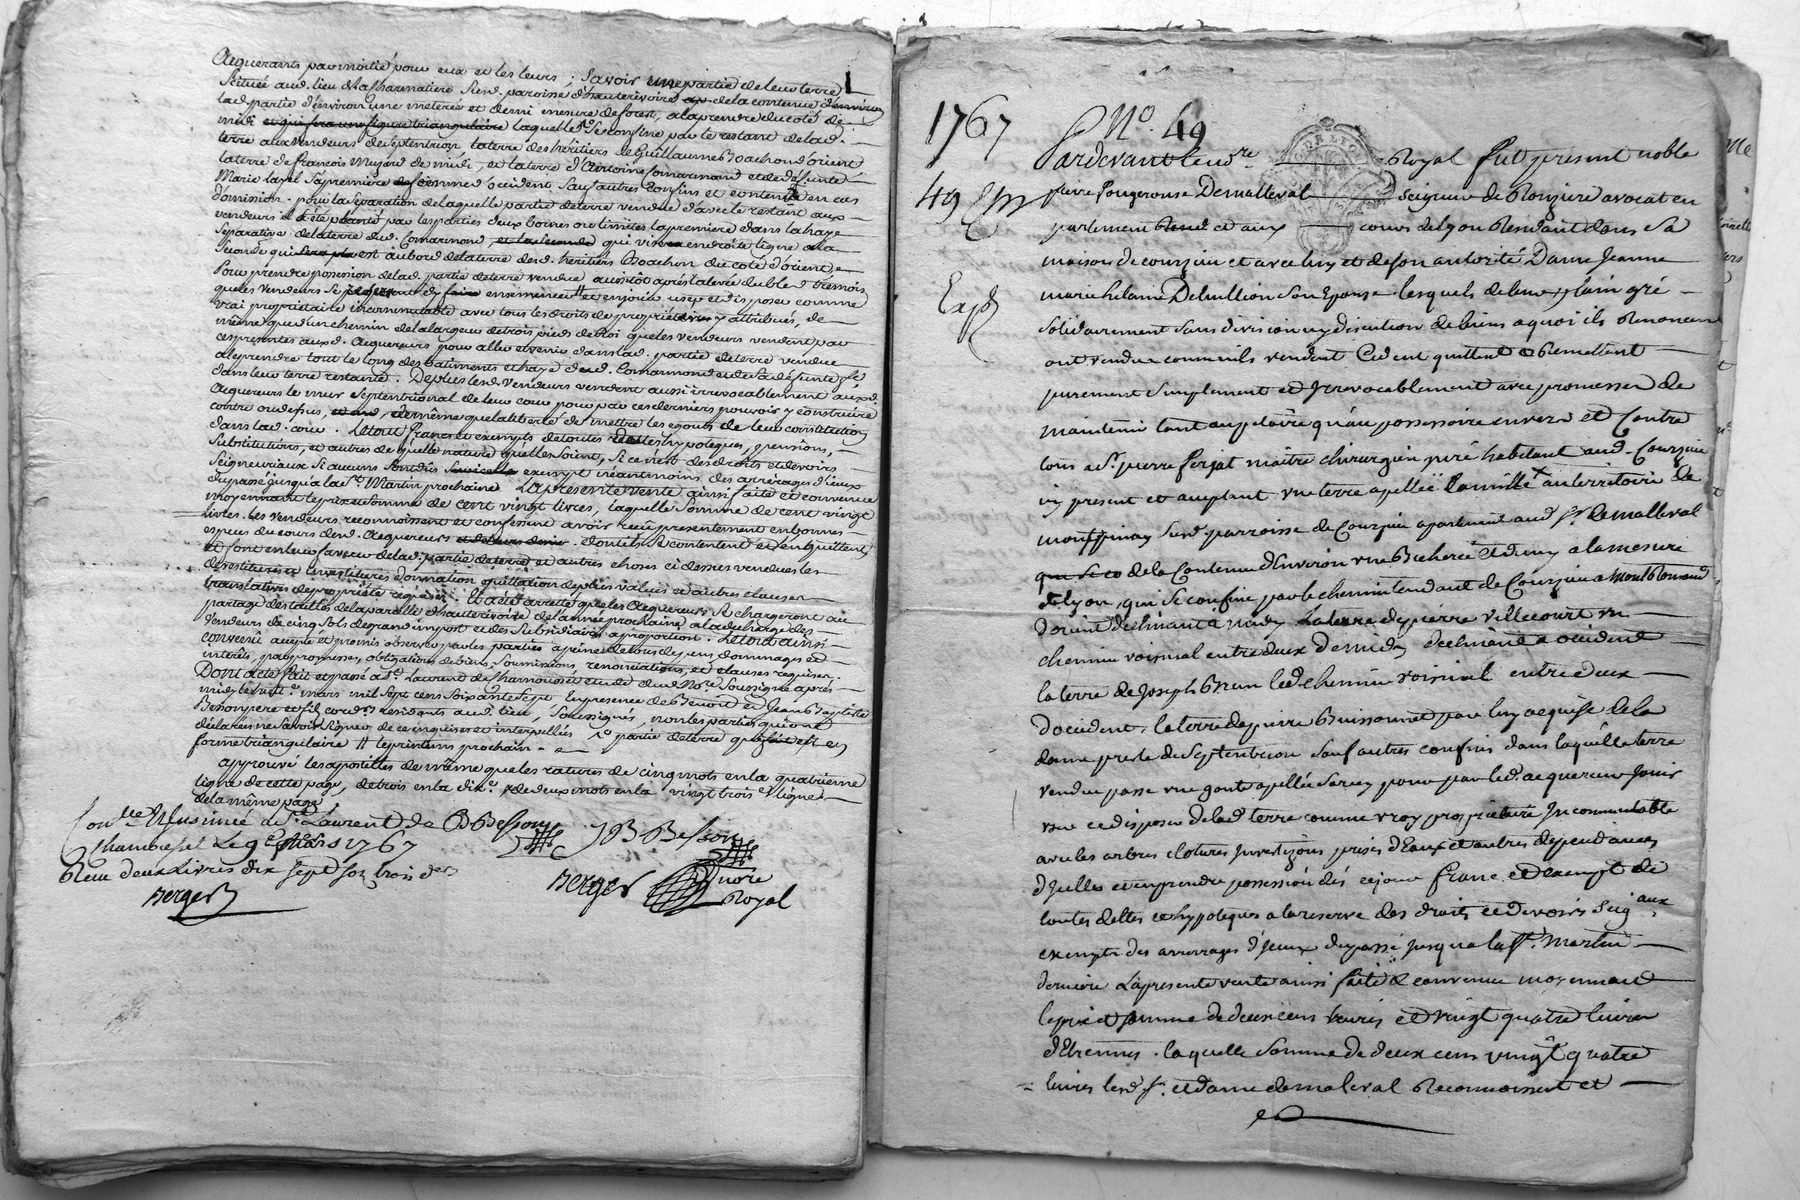 Acquerants par moitié pour eux et les leurs ; Savoir une partie de leur terre
Scituée aud. lieu de la charmatiere Susd. paroisse d'hauterivoire de la contenue d'environ
lad. partie d'environ une meterée et demi mesure de forest, a la prendre du coté de
midi et qui fera une figure triangulaire laquelle Se confine par le restant de lad.
terre aux vendeurs de Septentrion la terre des heritiers de Guillaume Boachon d'orient
la terre de francois Mujard de midi, et la terre d'Antoine Comarmond et de defunte
Marie Sa premiere femme d'occident Sauf autres Confins et contenue en cas
d'omission. pour la Separation de laquelle partie de terre vendue d'avec le restant aux
vendeurs il a été planté par les parties deux bornes ou limittes la premiere dans la haye
Separative de la terre dud. Comarmond, et la seconde qui vise en droite ligne a la
Seconde qui est au bord de la terre desd. heritiers Boachon du coté d'orient
Pour prendre possession de lad. partie de terre vendue aussitot après la levée du bled tremois
que les vendeurs et en jouir user et disposer comme
vrai proprietaire incommutable avec tous les droits de proprieté y attribués, de
même que d'un chemin de la largeur de trois pieds de Roi que les vendeurs vendent par
ces presentes auxd. Acquereurs pour aller et venir dans lad. partie de terre vendue
a le prendre tout le long des batiments et haye dud. Comarmond et de Sa défunte fe
dans leur terre restante. De plus lesd. Vendeurs vendent aussi irrevocablement auxd.
Acquereurs le mur Septentrional de leur cour pour par ces derniers pouvoir y construire
contre ou dessus, de même que la liberté de mettre les egouts de leur constitution
dans lad. cour. Le tout franc et exempts de toutes dettes hypoteques, pensions,
Substitutions, et autres de quelle nature quelles Soient, Si ce n'est des droits et devoirs
Seigneuriaux Si aucuns Sont dus exempt néantmoins des arrerages d'iceux
du passé jusqu'à la St. Martin prochaine. La presente vente ainsi faite et convenue
moyennant le prix et Somme de Cent vingt livres, laquelle Somme de cent vingt
livres. les vendeurs reconnoissent et confessent avoir reçu presentement en bonnes
espèces du cours desd. Acquereurs et de leurs denier. dont ils Se contentent et en quittent
et Sont en leur faveur de lad. partie de terre et autres choses ci dessus vendues les
devestitures et investitures donnation quittation de plus values et autres clauses
translatives de proprieté requises. Il a été arretté que les Acquereurs Se chargeront au
partage des tailles de la parcelle d'hauterivoire de l'année prochaine a la decharge des
Vendeurs de cinq Sols de grand impost et des Subsidiaires a proportion. Le tout ainsi
convenû accepté et promis observer par les parties a peine de tous depens dommages et
intérêts, par promesses, obligations de biens, Soumissions renonciations, et clauses requises.
Dont acte Fait et passé a St. Laurent de Chamousset etude dud. No.re Soussigné après
midy le vingt mars mil Sept cens Soixante Sept, En presence de Benoit et Jean Baptiste
Besson pere et fil cord.rs residents aud. lieu, Soussignés, non les parties qui ont
déclaré ne Savoir Signer de ce enquises et interpellées 1o. partie de terre qui fait est en
forme triangulaire # le printems prochain.
approuvé les apostilles de même que les ratures de cinq mots en la quatrieme
ligne de cette page, de trois en la dix.e & de deux mots en la vingt trois.e Ligne
de la même page
Con.llé & Insinué a St. Laurent de B Besson J B Besson
Chamousset Le 9e Mars 1767
Reçu deux Livres dix Sept Sols trois den
Berger Berger Nore
Royal
1767 No. 49
Pardevant le no.re Royal fut present noble
49 Em pierre Pougerouse Demalleval Seigneur de Rongiere avocat en
parlement et aux cours de lyon Residant dans Sa
maison de courzieu et avec luy et de Son autorité Dame Jeanne
Exp marie helaine Debullion Son Epouse. lesquels de leur plain gré
Solidairement Sans division ny discution de biens a quoi ils Renoncent
ont vendu comme ils vendent Cedent quittent & Remettent
purement Simplement et Irrevocablement avec promesses de
maintenir tant au petoire qu'au possessoire envers et Contre
tous a Sr. pierre ferjat maitre chirurgien juré habitant aud. Courzieu
icy present et acceptant une terre apellée Lamillie au territoire de
Susd. parroisse de Courzieu apartenant aud. Sr. de Malleval
de la Contenue d'Environ une Bicherée et demy a la mesure
de lyon, qui Se confine par le chemin tendant de Courzieu a Mont Romand
d'orient déclinant a midy La terre de pierre Villecourt un
chemin voisinal entre deux de midy déclinant a occident
la terre de Joseph Brun led. chemin voisinal entre deux
d'occident, la terre de pierre Buissonnet par luy acquise de la
dame de Septentrion Sauf autres confins dans laquelle terre
vendue passe une goute apellée pour par led. acquereur Jouir
user et disposer de lad. terre comme vray proprietaire Incommutable
avec les arbres clotures Investizons prises d'Eaux et autres dependances
d'Icelles et en prendre possession dés ce jour franc et Exempt de
toutes dettes et hypoteques a la reserve des droits et devoirs Seigaux
exempts des arrerages d'Jceux du passé jusqu'a la St. Martin
derniere La presente vente ainsi faite & convenue moyennant
le prix et Somme de deux cens livres et vingt quatre livres
d'Etrennes. laquelle Somme de deux cens vingt quatre
livres lesd. Sr. et dame demaleval Reconnoissent et